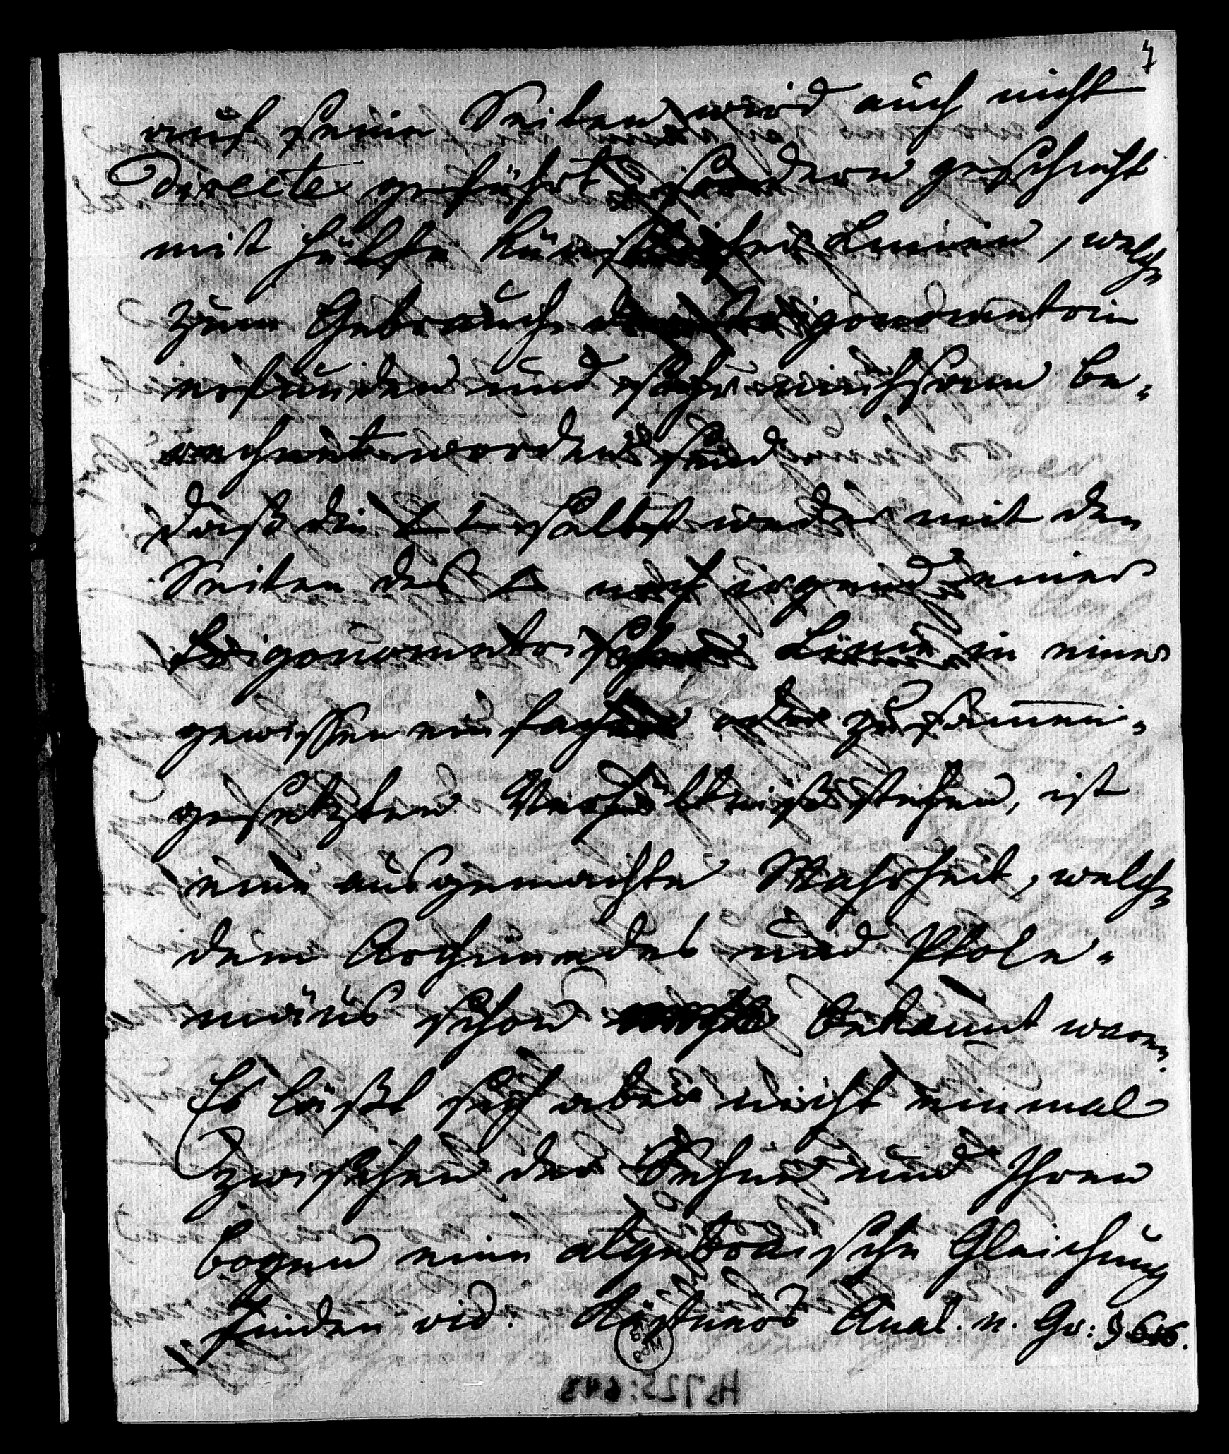 4
auf seine Seiten wird auch nicht
directe geführt, sondern geschieht
mit Hülfe künstlicher Linien, welche
zum Gebrauch der Trigonometrie
erfunden und sehr mühsam be-
rechnet worden sind.
daß die selbst weder mit den
Seiten des noch irgend einer
trigonometrischen Linie in einer
gewissen einfachen oder zusammen-
gesetzten Verhältniß stehen, ist
eine ausgemachte Wahrheit, welche
dem Archimedes und Ptole-
mäus schon bekannt waren.
Es läßt sich aber nicht einmal
zwischen der Sehne und Ihren
bogen eine algebraische Gleichung
finden vid. Kästners Anal. u. Gr: §
Hs 725:643